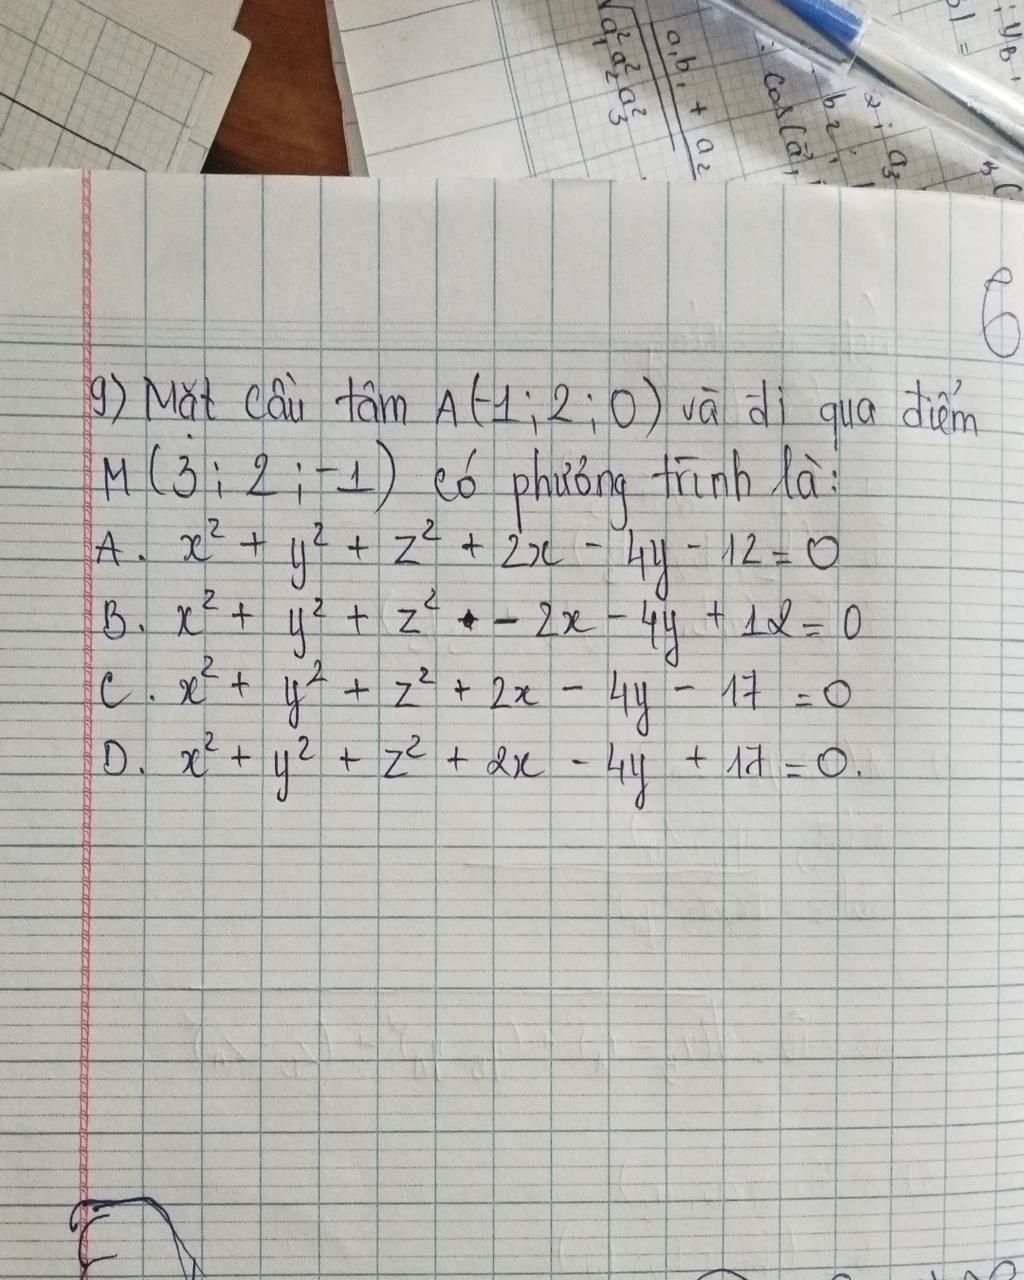 a₁b₁ + a₂
√a₁² a₂² a₃²
cos(a⃗,
2; a₃
b₂;
6
9) Mặt cầu tâm A(-1; 2; 0) và đi qua điểm
M(3; 2; -1) có phương trình là:
A. x² + y² + z² + 2x - 4y - 12 = 0
B. x² + y² + z² - 2x - 4y + 12 = 0
C. x² + y² + z² + 2x - 4y - 17 = 0
D. x² + y² + z² + 2x - 4y + 17 = 0.